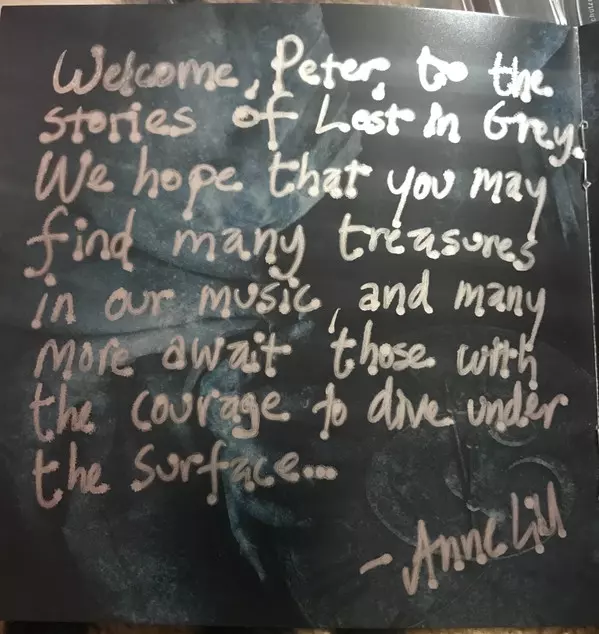 Welcome, Peter, to the
stories of Lost in Grey.
We hope that you may
find many treasures
in our music, and many
more await those with
the courage to dive under
the surface...
- Anne Lill